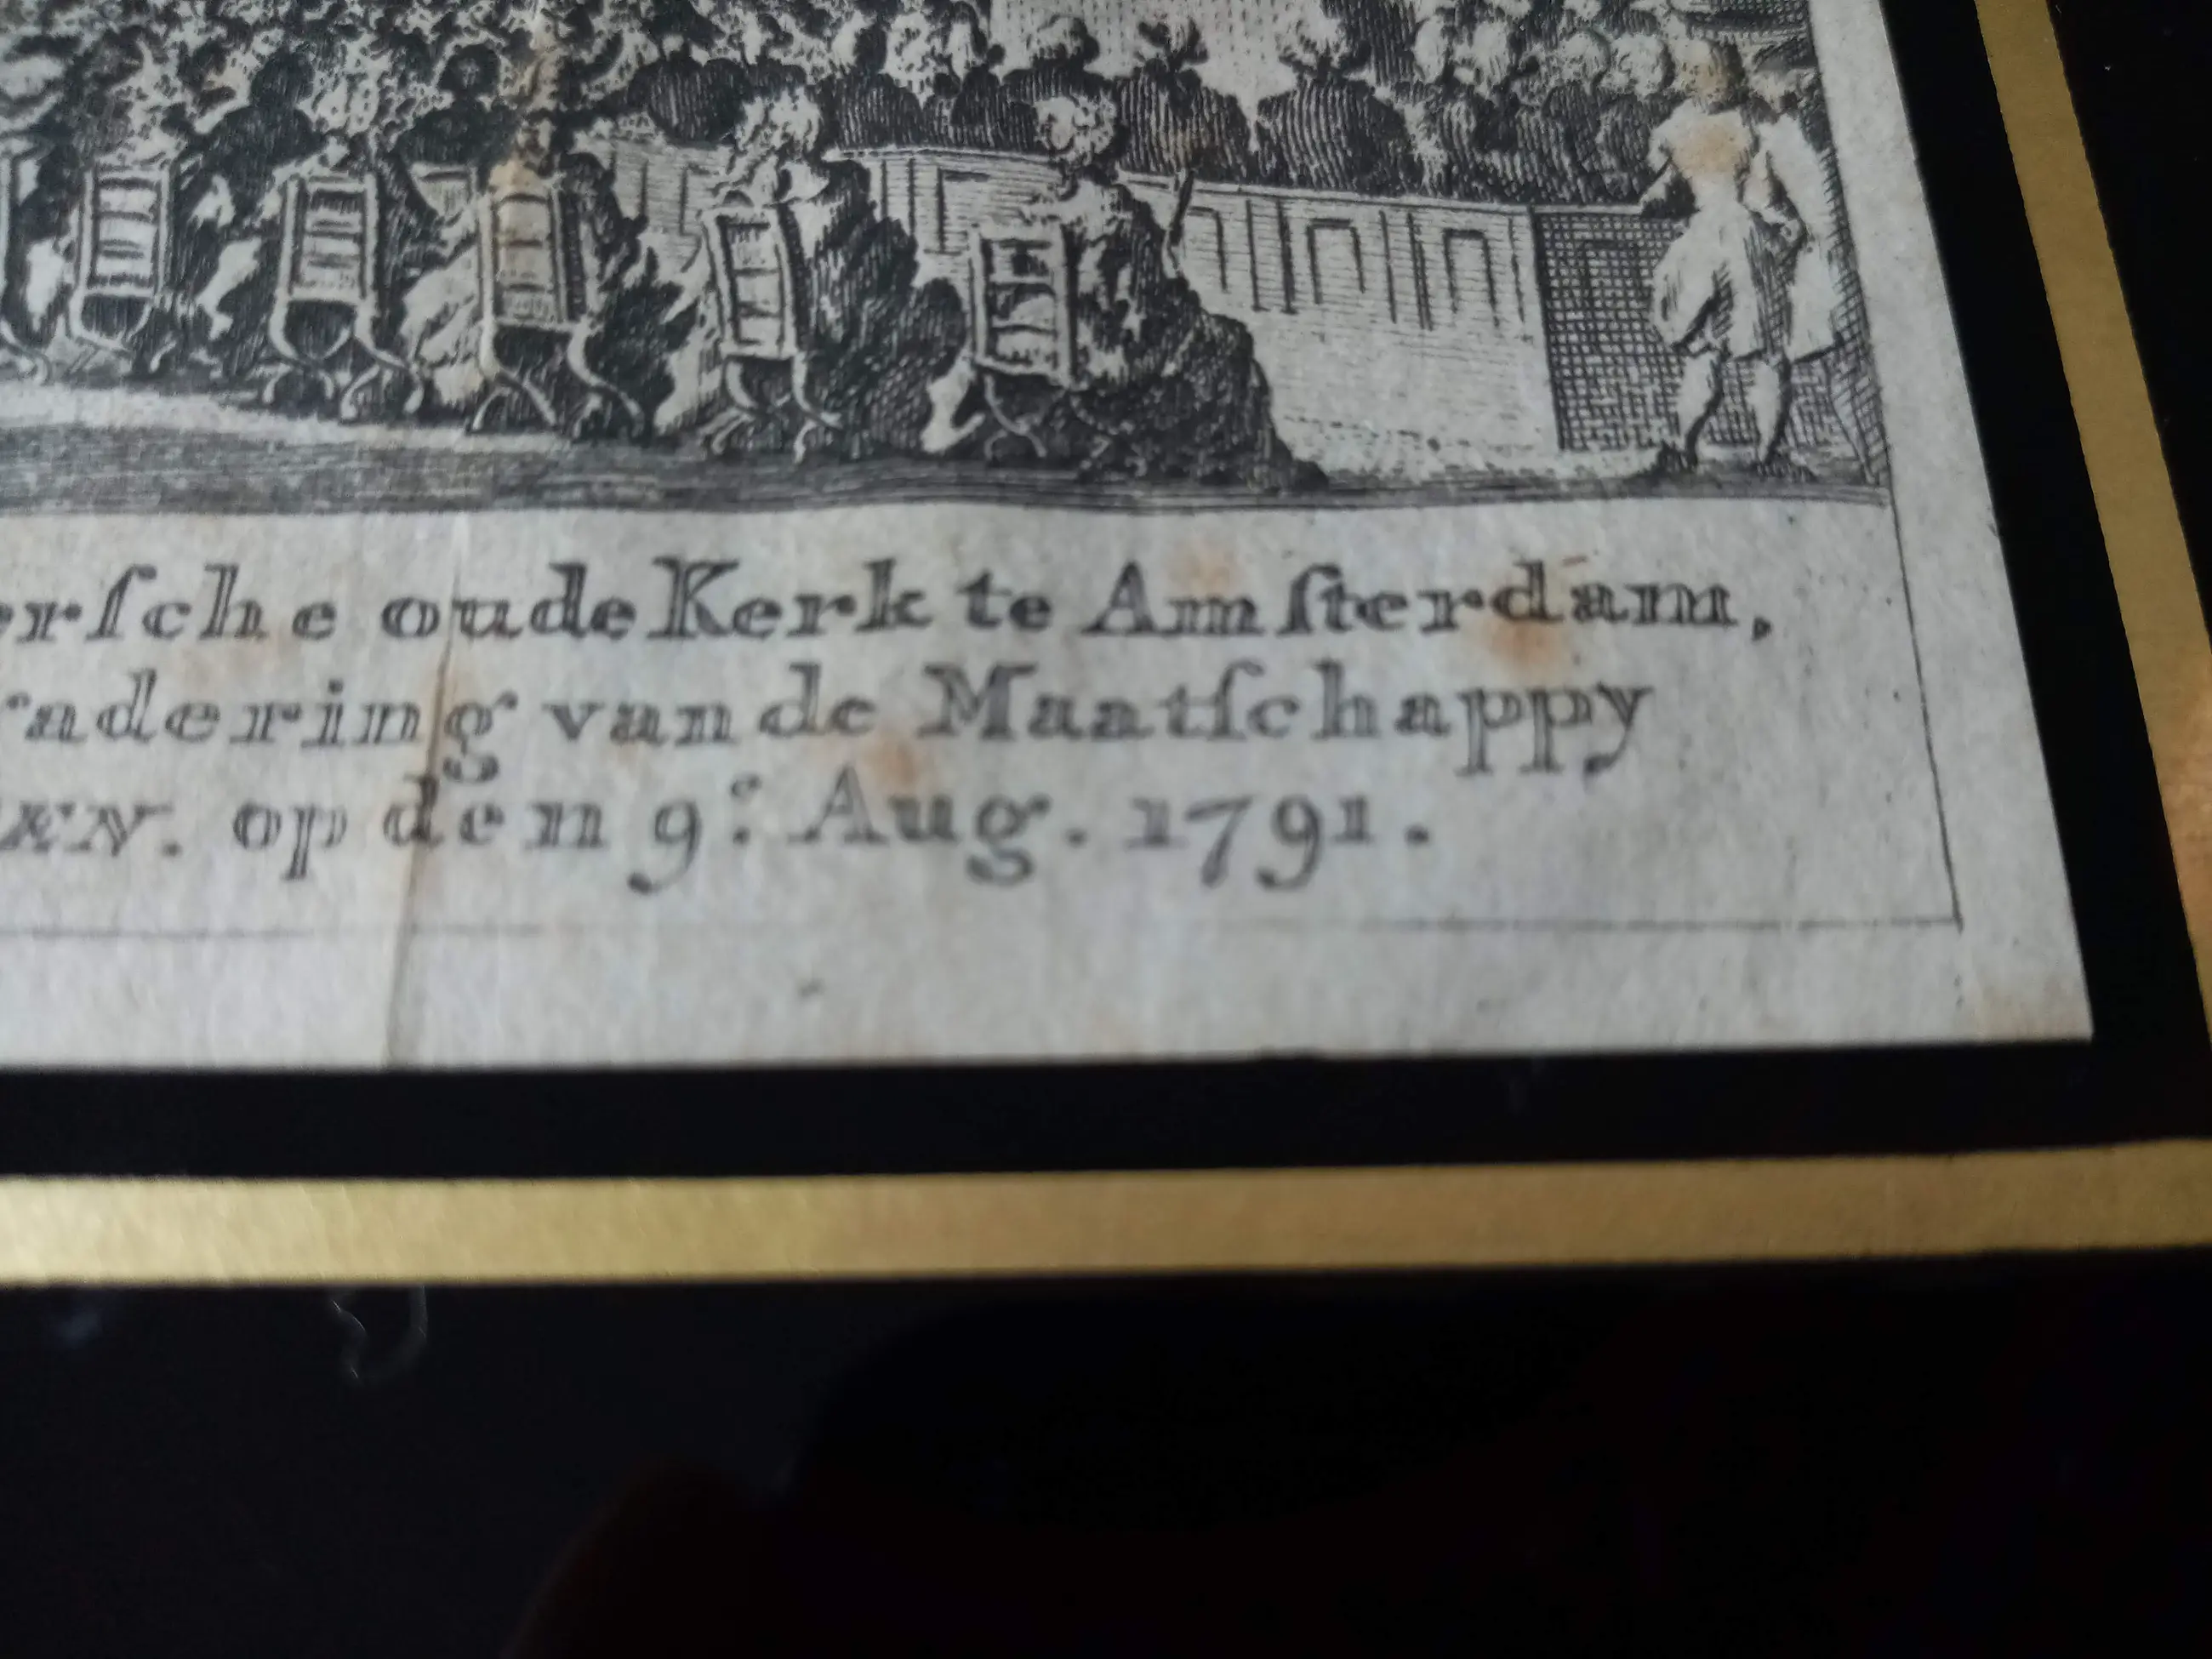 erſche oude Kerk te Amſterdam,
adering van de Maatſchappy
en. op den 9.e Aug. 1791.